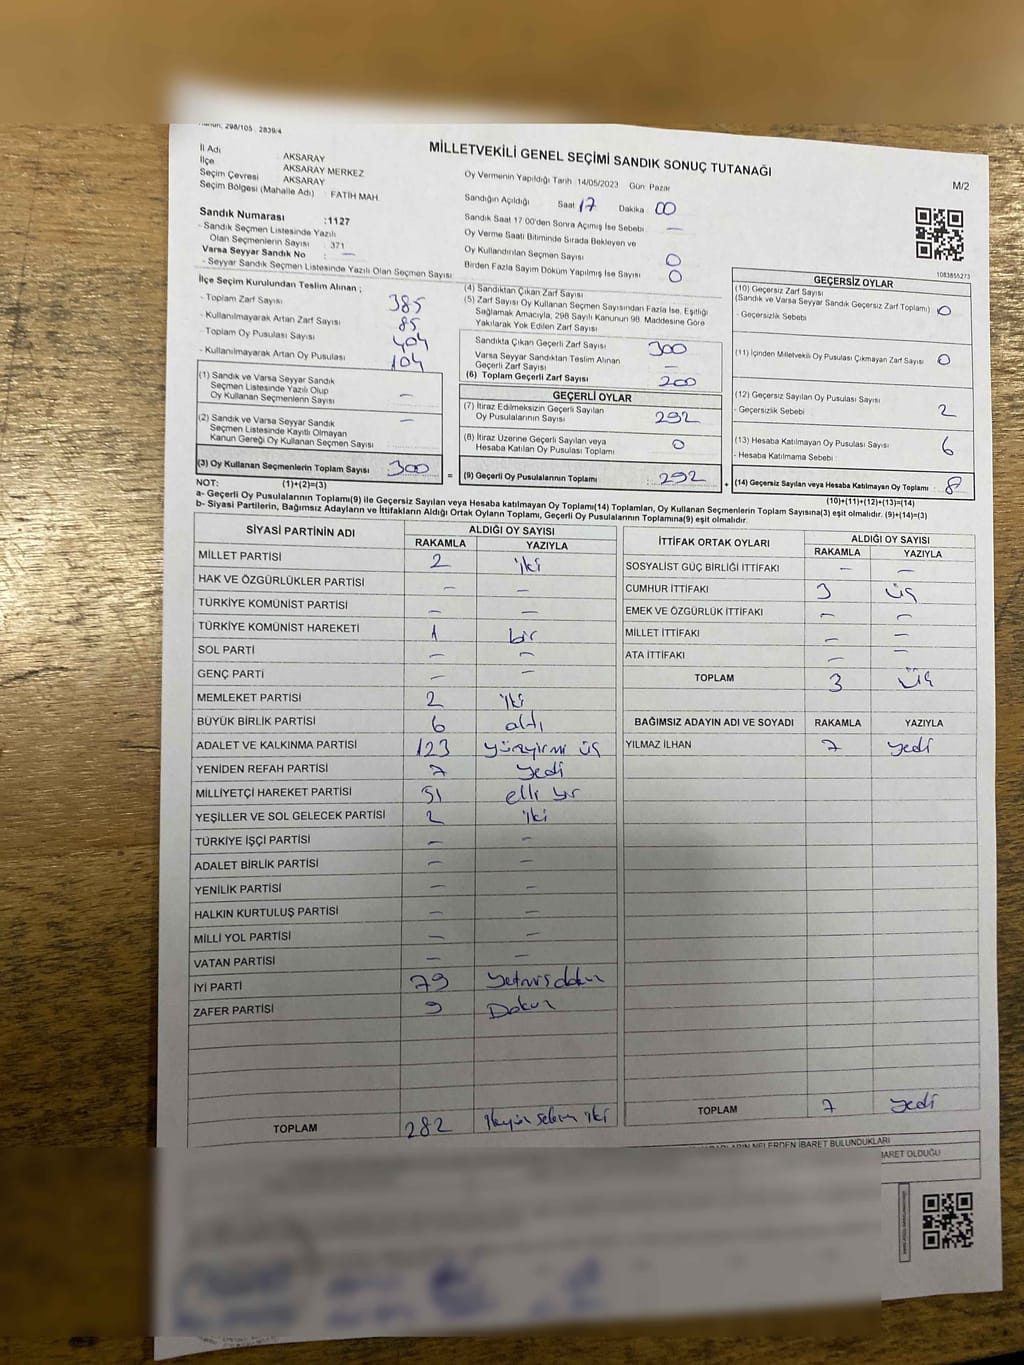 Kanun; 298/105 , 2839/4
MİLLETVEKİLİ GENEL SEÇİMİ SANDIK SONUÇ TUTANAĞI
M/2
İl Adı : AKSARAY
İlçe : AKSARAY MERKEZ
Seçim Çevresi : AKSARAY
Seçim Bölgesi (Mahalle Adı) : FATİH MAH.
Sandık Numarası :1127
- Sandık Seçmen Listesinde Yazılı
Olan Seçmenlerin Sayısı : 371
Varsa Seyyar Sandık No : —
- Seyyar Sandık Seçmen Listesinde Yazılı Olan Seçmen Sayısı
Oy Vermenin Yapıldığı Tarih :14/05/2023 Gün: Pazar
Sandığın Açıldığı Saat 17 Dakika 00
Sandık Saat 17:00'den Sonra Açımış İse Sebebi : —
Oy Verme Saati Bitiminde Sırada Bekleyen ve
Oy Kullandırılan Seçmen Sayısı : 0
Birden Fazla Sayım Döküm Yapılmış İse Sayısı : 0
1083855273
İlçe Seçim Kurulundan Teslim Alınan ;
- Toplam Zarf Sayısı : 385
- Kullanılmayarak Artan Zarf Sayısı : 85
- Toplam Oy Pusulası Sayısı : 404
- Kullanılmayarak Artan Oy Pusulası : 104
(1) Sandık ve Varsa Seyyar Sandık
Seçmen Listesinde Yazılı Olup
Oy Kullanan Seçmenlerin Sayısı : —
(2) Sandık ve Varsa Seyyar Sandık
Seçmen Listesinde Kayıtlı Olmayan
Kanun Gereği Oy Kullanan Seçmen Sayısı : —
(3) Oy Kullanan Seçmenlerin Toplam Sayısı : 300
NOT: (1)+(2)=(3)
(4) Sandıktan Çıkan Zarf Sayısı
(5) Zarf Sayısı Oy Kullanan Seçmen Sayısından Fazla İse, Eşitliği
Sağlamak Amacıyla, 298 Sayılı Kanunun 98. Maddesine Göre
Yakılarak Yok Edilen Zarf Sayısı
Sandıkta Çıkan Geçerli Zarf Sayısı : 300
Varsa Seyyar Sandıktan Teslim Alınan
Geçerli Zarf Sayısı : —
(6) Toplam Geçerli Zarf Sayısı : 200
GEÇERLİ OYLAR
(7) İtiraz Edilmeksizin Geçerli Sayılan
Oy Pusulalarının Sayısı : 292
(8) İtiraz Üzerine Geçerli Sayılan veya
Hesaba Katılan Oy Pusulası Toplamı : 0
= (9) Geçerli Oy Pusulalarının Toplamı : 292
GEÇERSİZ OYLAR
(10) Geçersiz Zarf Sayısı
(Sandık ve Varsa Seyyar Sandık Geçersiz Zarf Toplamı) : 0
- Geçersizlik Sebebi :
(11) İçinden Milletvekili Oy Pusulası Çıkmayan Zarf Sayısı : 0
(12) Geçersiz Sayılan Oy Pusulası Sayısı : 2
- Geçersizlik Sebebi :
(13) Hesaba Katılmayan Oy Pusulası Sayısı : 6
- Hesaba Katılmama Sebebi :
+ (14) Geçersiz Sayılan veya Hesaba Katılmayan Oy Toplamı : 8
(10)+(11)+(12)+(13)=(14)
a- Geçerli Oy Pusulalarının Toplamı(9) ile Geçersiz Sayılan veya Hesaba katılmayan Oy Toplamı(14) Toplamları, Oy Kullanan Seçmenlerin Toplam Sayısına(3) eşit olmalıdır. (9)+(14)=(3)
b- Siyasi Partilerin, Bağımsız Adayların ve İttifakların Aldığı Ortak Oyların Toplamı, Geçerli Oy Pusulalarının Toplamına(9) eşit olmalıdır.
SİYASİ PARTİNİN ADI ALDIĞI OY SAYISI
RAKAMLA YAZIYLA
MİLLET PARTİSİ 2 iki
HAK VE ÖZGÜRLÜKLER PARTİSİ — —
TÜRKİYE KOMÜNİST PARTİSİ — —
TÜRKİYE KOMÜNİST HAREKETİ 1 bir
SOL PARTİ — —
GENÇ PARTİ — —
MEMLEKET PARTİSİ 2 iki
BÜYÜK BİRLİK PARTİSİ 6 altı
ADALET VE KALKINMA PARTİSİ 123 yüzyirmi üç
YENİDEN REFAH PARTİSİ 7 yedi
MİLLİYETÇİ HAREKET PARTİSİ 51 elli bir
YEŞİLLER VE SOL GELECEK PARTİSİ 2 iki
TÜRKİYE İŞÇİ PARTİSİ — —
ADALET BİRLİK PARTİSİ — —
YENİLİK PARTİSİ — —
HALKIN KURTULUŞ PARTİSİ — —
MİLLİ YOL PARTİSİ — —
VATAN PARTİSİ — —
İYİ PARTİ 79 yetmiş dokuz
ZAFER PARTİSİ 9 Dokuz
TOPLAM 282 ikiyüz seksen iki
İTTİFAK ORTAK OYLARI ALDIĞI OY SAYISI
RAKAMLA YAZIYLA
SOSYALİST GÜÇ BİRLİĞİ İTTİFAKI — —
CUMHUR İTTİFAKI 3 üç
EMEK VE ÖZGÜRLÜK İTTİFAKI — —
MİLLET İTTİFAKI — —
ATA İTTİFAKI — —
TOPLAM 3 üç
BAĞIMSIZ ADAYIN ADI VE SOYADI RAKAMLA YAZIYLA
YILMAZ İLHAN 7 yedi
TOPLAM 7 yedi
NELERDEN İBARET BULUNDUKLARI
İBARET OLDUĞU